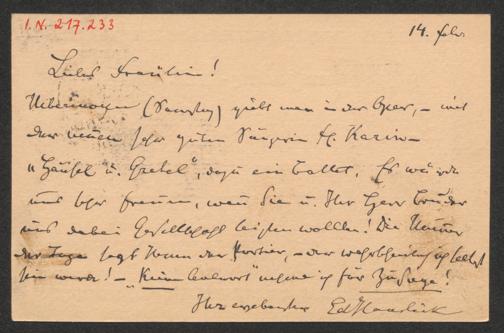 I.N. 217.233
14. febr.
Liebes Fräulein!
Übermorgen (Samstag) giebt man in der Oper, – mit
der neuen sehr guten Sängerin
„Hänsel u. Gretel", dazu ein Ballet. Es würde
uns sehr freuen, wenn Sie u. Ihr Herr Bruder
uns dabei Gesellschaft leisten wollten! Die Numer
der Loge sagt Ihnen der Portier, – der wahrscheinlich selbst
sein wird! – „Keine Antwort" nehme ich für Zusage!
Ihr ergebenster Ed Hanslick